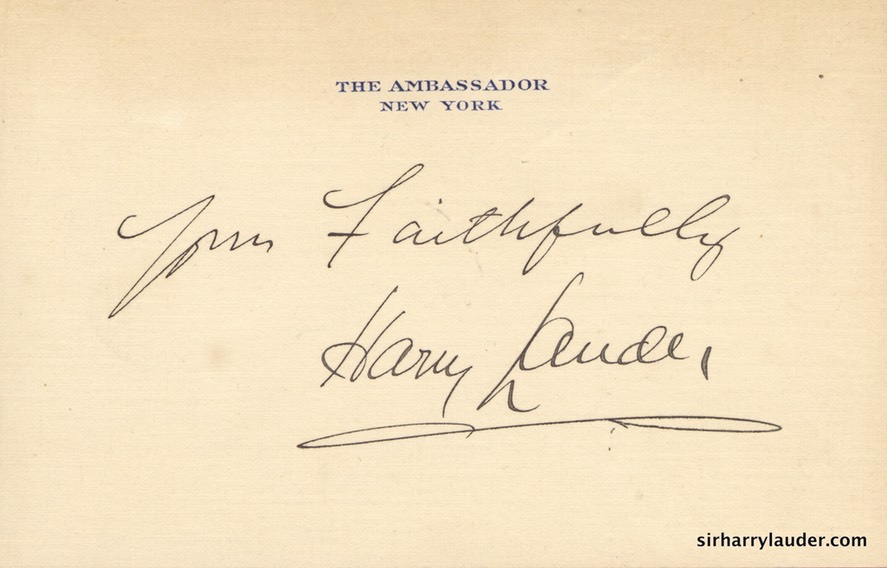 THE AMBASSADOR
NEW YORK
Yours Faithfully
Harry Lauder
sirharrylauder.com